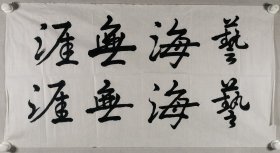 藝海無涯
藝海無涯